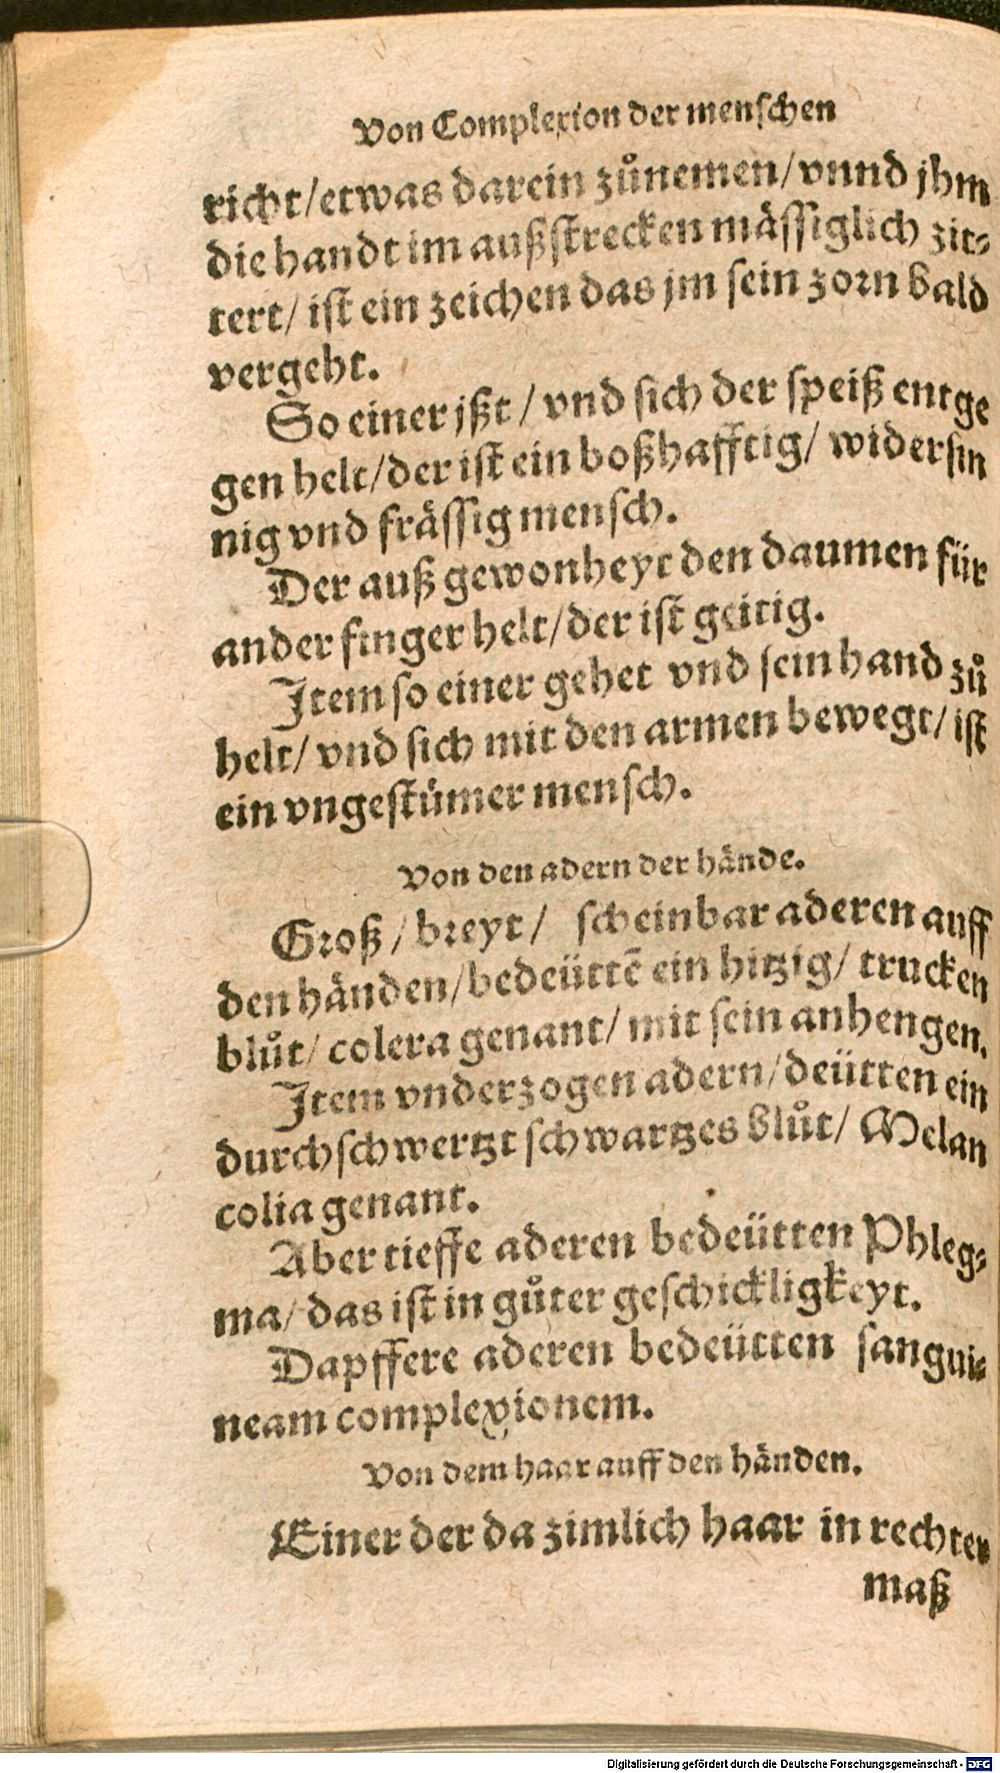 Von Complexion der menschen
richt/etwas darein zůnemen/vnnd jhm
die handt im außstrecken mässiglich zit⸗
tert/ ist ein zeichen das jm sein zorn bald
vergeht.
So einer jßt / vnd sich der speiß entge
gen helt/der ist ein boßhafftig/ widersin
nig vnd frässig mensch.
Der auß gewonheyt den daumen für
ander finger helt/der ist geitig.
Item so einer gehet vnd sein hand zů
helt/ vnd sich mit den armen bewegt/ ist
ein vngestümer mensch.
Von den adern der hände.
Groß / breyt / scheinbar aderen auff
den händen/bedeüttē ein hitzig/ trucken
blůt/ colera genant/ mit sein anhengen.
Item vnderzogen adern/deütten ein
durchschwertzt schwartzes blůt/ Melan
colia genant.
Aber tieffe aderen bedeütten Phleg⸗
ma/ das ist in gůter geschickligkeyt.
Dapffere aderen bedeütten sangui⸗
neam complexionem.
Von dem haar auff den händen.
Einer der da zimlich haar in rechter
maß
Digitalisierung gefördert durch die Deutsche Forschungsgemeinschaft - DFG